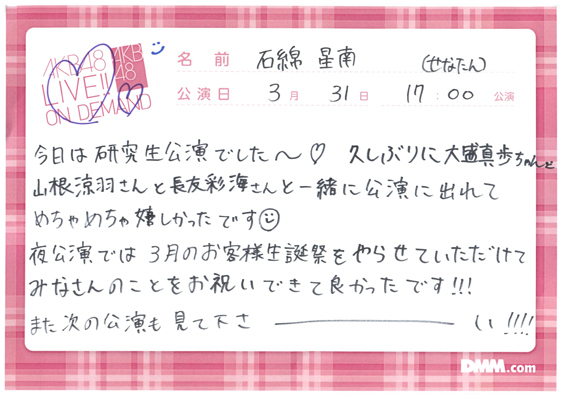 AKB48
LIVE!!
ON DEMAND
AKB
48
名前 石綿 星南 (せなたん)
公演日 3月 31日 17:00 公演
今日は研究生公演でした〜♡ 久しぶりに大盛真歩ちゃんと
山根涼羽さんと長友彩海さんと一緒に公演に出れて
めちゃめちゃ嬉しかったです☺
夜公演では3月のお客様生誕祭をやらせていただけて
みなさんのことをお祝いできて良かったです!!!
また次の公演も見て下さ――――い!!!!
DMM.com